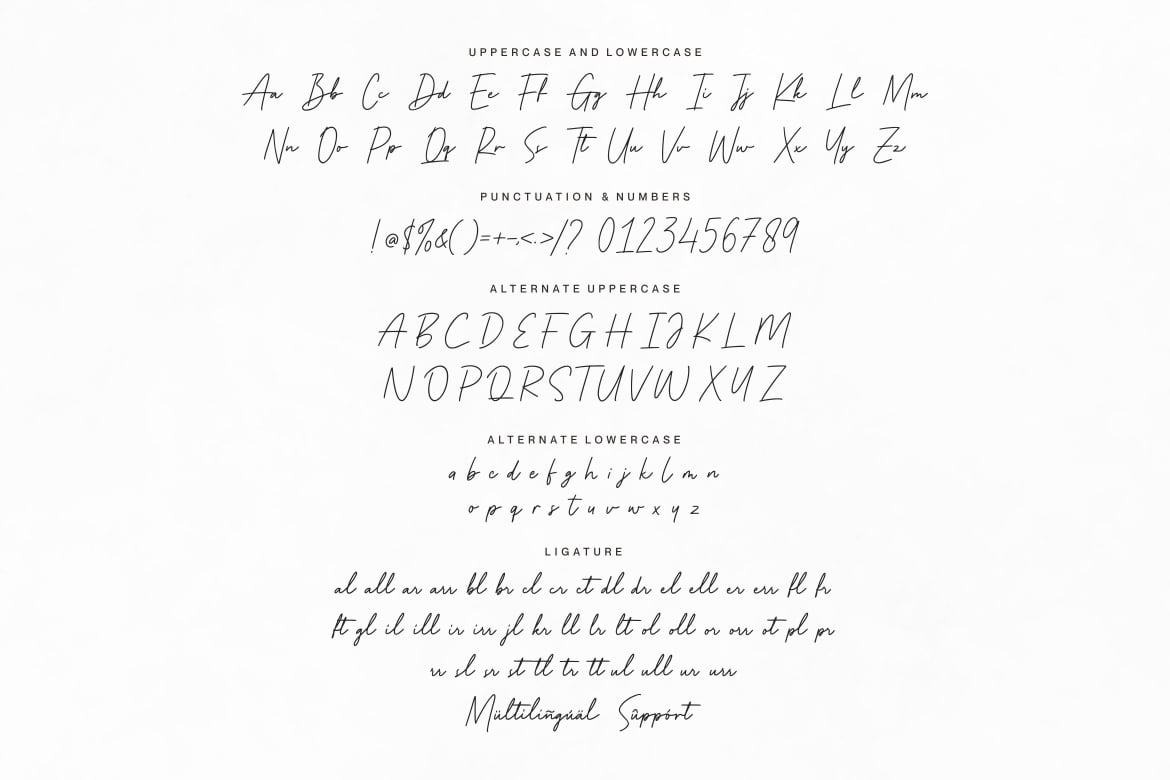 UPPERCASE AND LOWERCASE
Aa Bb Cc Dd Ee Ff Gg Hh Ii Jj Kk Ll Mm
Nn Oo Pp Qq Rr Ss Tt Uu Vv Ww Xx Yy Zz
PUNCTUATION & NUMBERS
!@$%&()=+-,<.>/? 0123456789
ALTERNATE UPPERCASE
ABCDEFGHIJKLM
NOPQRSTUVWXYZ
ALTERNATE LOWERCASE
a b c d e f g h i j k l m n
o p q r s t u v w x y z
LIGATURE
al all ar arr bl br cl cr ct dl dr el ell er err fl fr
ft gl il ill ir irr jl kr ll lr lt ol oll or orr ot pl pr
rr sl sr st tl tr tt ul ull ur urr
Mültiliñgúäl Sũppórt